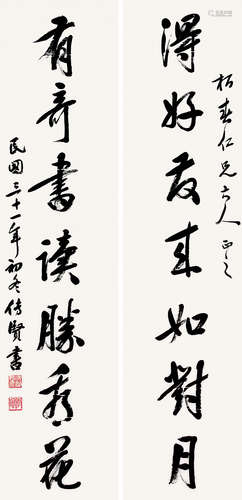 柏春仁兄大人正之
得好友來如對月
有奇書讀勝看花
民國三十一年初冬傳賢書